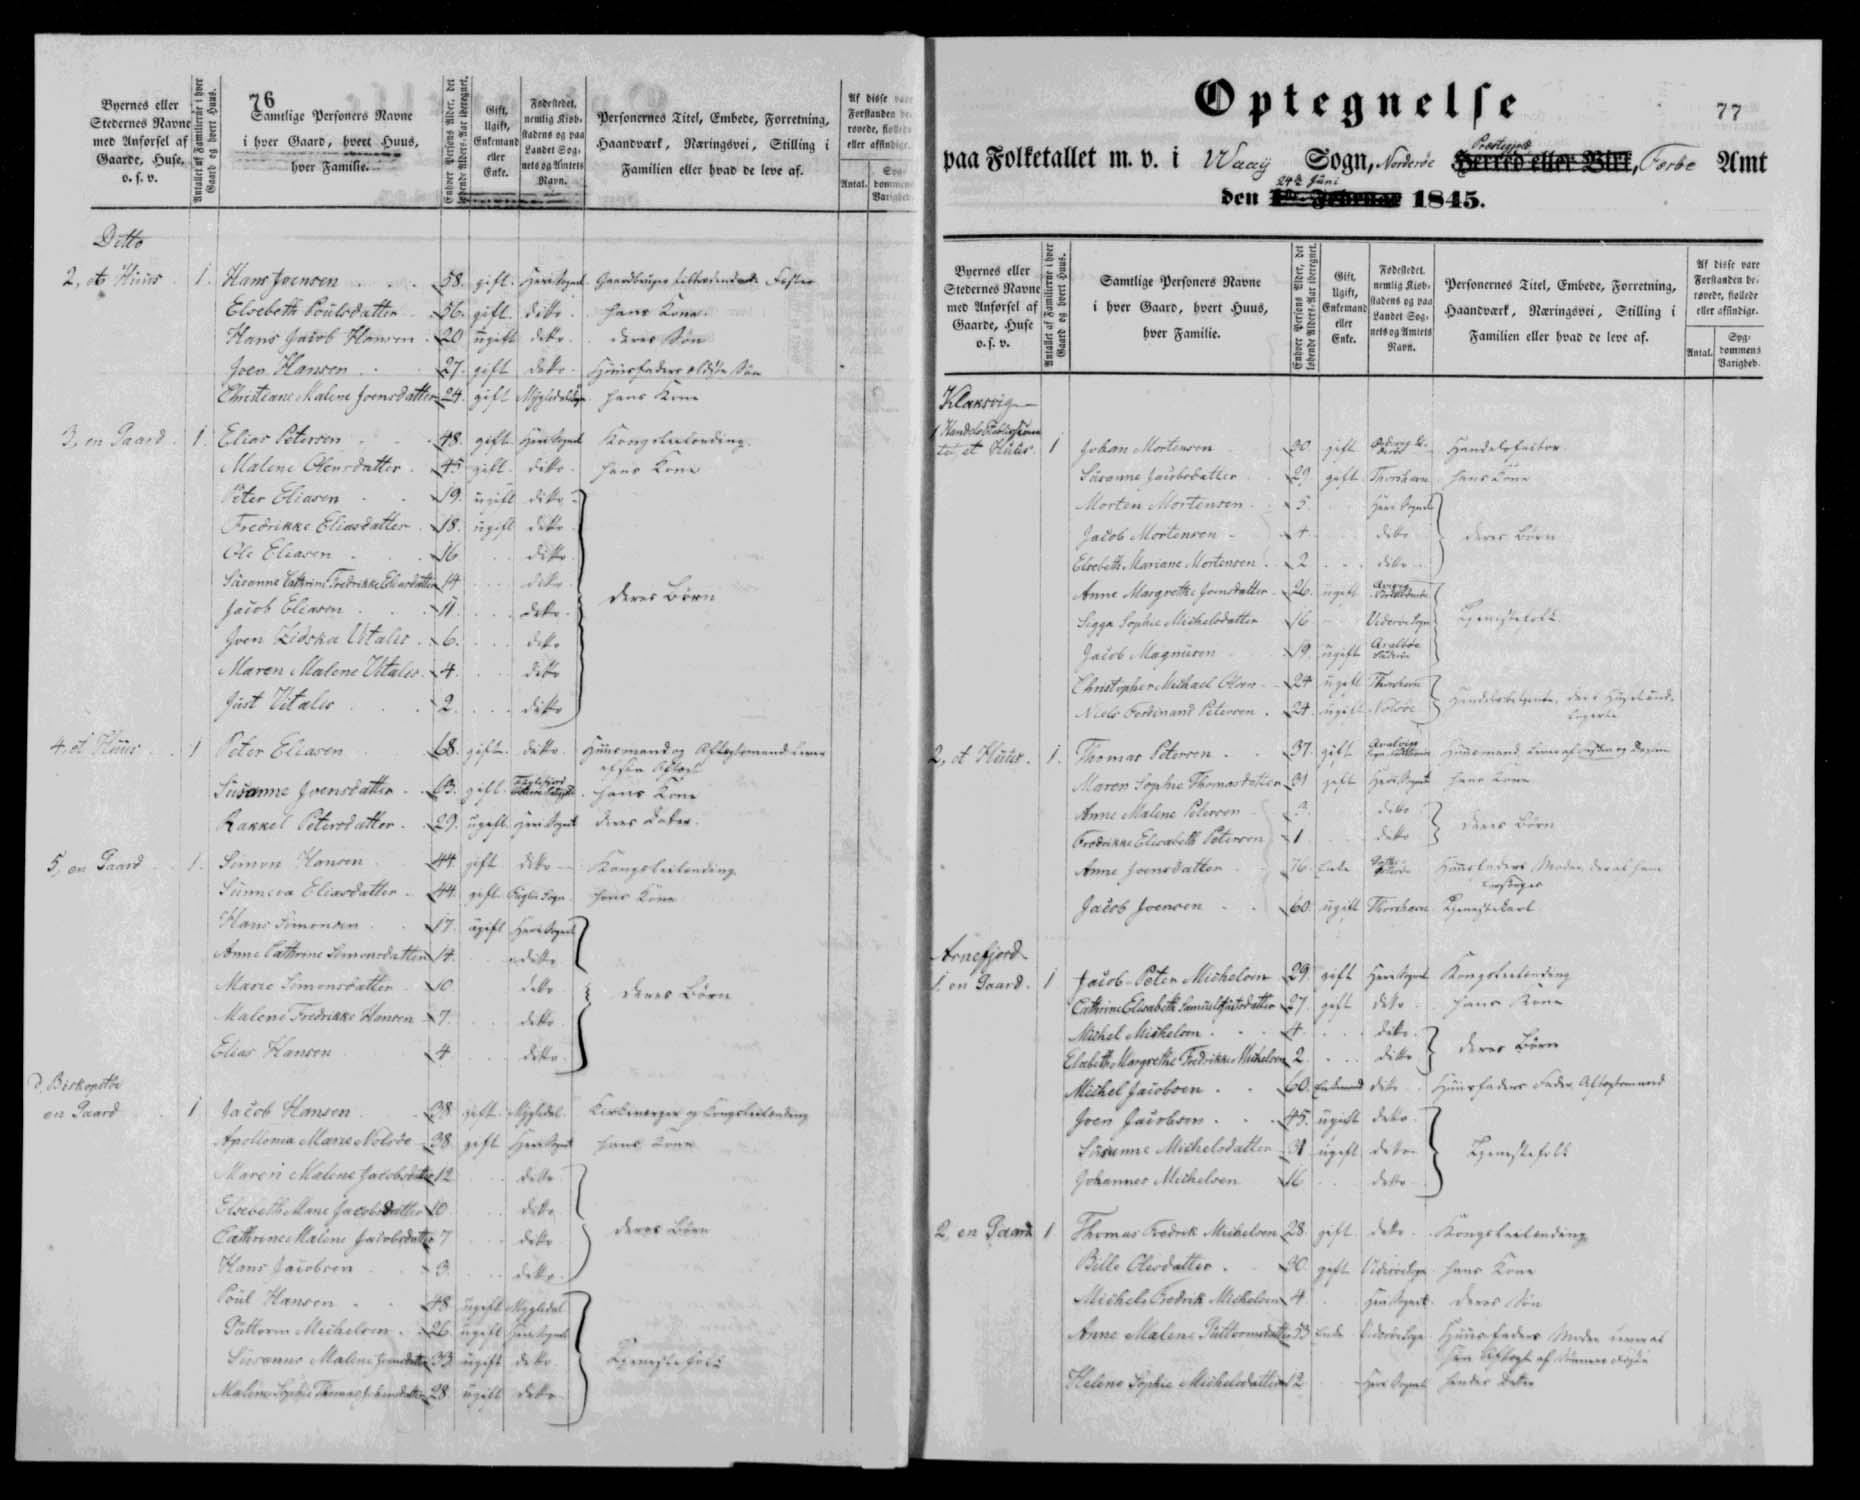 76
Byernes eller Stedernes Navne med Anførsel af Gaarde, Huse, o. s. v.
Antallet af Familierne i hver Gaard og hvert Huus.
Samtlige Personers Navne i hver Gaard, hvert Huus, hver Familie.
Enhver Persons Alder, det løbende Alders-Aar iberegnet.
Gift, Ugift, Enkemand eller Enke.
Fødestedet, nemlig Kiøbstadens og paa Landet Sognets og Amtets Navn.
Personernes Titel, Embede, Forretning, Haandværk, Næringsvei, Stilling i Familien eller hvad de leve af.
Af disse vare Forstanden berøvede, fiollede eller afsindige.
Antal.
Ditto
2, et Huus 1. Hans Joensen 58. gift. Her i Sognet
Elsebeth Poulsdatter 56. gift. ditto hans Kone
Hans Jacob Hansen 20 ugift ditto deres Søn
Joen Hansen 27. gift ditto Huusfaders ældste Søn
Christiane Malene Joensdatter 24. gift hans Kone
3, en Gaard 1. Elias Petersen 48. gift. Her i Sognet Kongsleilending
Malene Olensdatter 45 gift. ditto hans Kone
Peter Eliasen 19. ugift ditto
Fredrikke Eliasdatter 18. ugift ditto
Ole Eliasen 16 ditto
Susanne Cathrine Fredrikke Eliasdatter 14 ditto
Jacob Eliasen 11 ditto deres Børn
Joen Zidska Vitalis 6. ditto
Maren Malene Vitalis 4 ditto
Just Vitalis 2. ditto
4. et Huus 1 Peter Eliasen 68. gift. ditto Huusmand og Aftægtsmand lever af sin Aftægt
Susanne Joensdatter 63. gift. hans Kone
Rakkel Petersdatter 29. ugift. Her i Sognet deres Datter
5, en Gaard 1. Simon Hansen 44. gift ditto Kongsleilending
Sunneva Eliasdatter 44. gift Fuglø Sogn hans Kone
Hans Simonsen 17. ugift Her i Sognet
Anne Cathrine Simonsdatter 14. ditto
Marie Simonsdatter 10 ditto deres Børn
Malene Fredrikke Hansen 7. ditto
Elias Hansen 4 ditto
Biskopstøe
en Gaard 1 Jacob Hansen 38 gift Mygledal Kirkeværger og Kongsleilending
Apollonia Marie Nolsøe 38 gift Her i Sognet hans Kone
Maren Malene Jacobsdatter 12 ditto
Elsebeth Marie Jacobsdatter 10 ditto
Cathrine Malene Jacobsdatter 7 ditto deres Børn
Hans Jacobsen 3. ditto
Poul Hansen 48 ugift Mygledal
Guttorm Michelsen 26 ugift Her i Sognet
Susanne Malene Joensdatter 33 ugift ditto Tjenestefolk
Malene Sophie Thomas 28 ugift ditto
77
Optegnelse
paa Folketallet m. v. i Waag Sogn, Norderøe Præstegjeld Herred eller Birk, Færøe Amt
den 24de Juni 1ste Februar 1845.
Byernes eller Stedernes Navne med Anførsel af Gaarde, Huse o. s. v.
Antallet af Familierne i hver Gaard og hvert Huus.
Samtlige Personers Navne i hver Gaard, hvert Huus, hver Familie.
Enhver Persons Alder, det løbende Alders-Aar iberegnet.
Gift, Ugift, Enkemand eller Enke.
Fødestedet, nemlig Kiøbstadens og paa Landet Sognets og Amtets Navn.
Personernes Titel, Embede, Forretning, Haandværk, Næringsvei, Stilling i Familien eller hvad de leve af.
Af disse vare Forstanden berøvede, fiollede eller afsindige.
Antal. Sygdommens Varighed.
Klaksvig
et Huus 1 Johan Mortensen 30. gift Handelsfactor
Susanne Jacobsdatter 29 gift Thorshavn hans Kone
Morten Mortensen 5. Her i Sognet
Jacob Mortensen 4 ditto deres Børn
Elsebeth Mariane Mortensen 2 ditto
Anne Margrethe Joensdatter 26. ugift
Sigga Sophie Michelsdatter 16 Viderøe Sogn Tjenestefolk
Jacob Magnusen 19. ugift Qvalbøe Suderøe
Christopher Michael Olsen 24 ugift Thorshavn
Niels Ferdinand Petersen 24. ugift Nolsøe
2, et Huus 1. Thomas Petersen 37. gift
Maren Sophie Thomasdatter 31 gift Her i Sognet hans Kone
Anne Malene Petersen 3. ditto
Fredrikke Elisabeth Petersen 1 ditto deres Børn
Anne Joensdatter 76. Enke Huusfaders Moder
Jacob Joensen 60. ugift Thorshavn Tjenestekarl
Arnefjord
1. en Gaard 1 Jacob Peter Michelsen 29. gift Her i Sognet Kongsleilending
Cathrine Elisabeth 27. gift ditto hans Kone
Michel Michelsen 4 ditto
Elsebeth Margrethe Fredrikke Michelsen 2 ditto deres Børn
Michel Jacobsen 60. Enkemand ditto Huusfaders Fader, Aftægtsmand
Joen Jacobsen 45. ugift ditto
Susanne Michelsdatter 31 ugift ditto Tjenestefolk
Johannes Michelsen 16 ditto
2, en Gaard 1 Thomas Fredrik Michelsen 28. gift ditto Kongsleilending
Bille Olesdatter 30. gift Viderøe Sogn hans Kone
Michel Fredrik Michelsen 4 Her i Sognet deres Søn
Anne Malene Guttormsdatter 53 Enke Viderøe Sogn Huusfaders Moder
Helene Sophie Michelsdatter 12 Her i Sognet hendes Datter